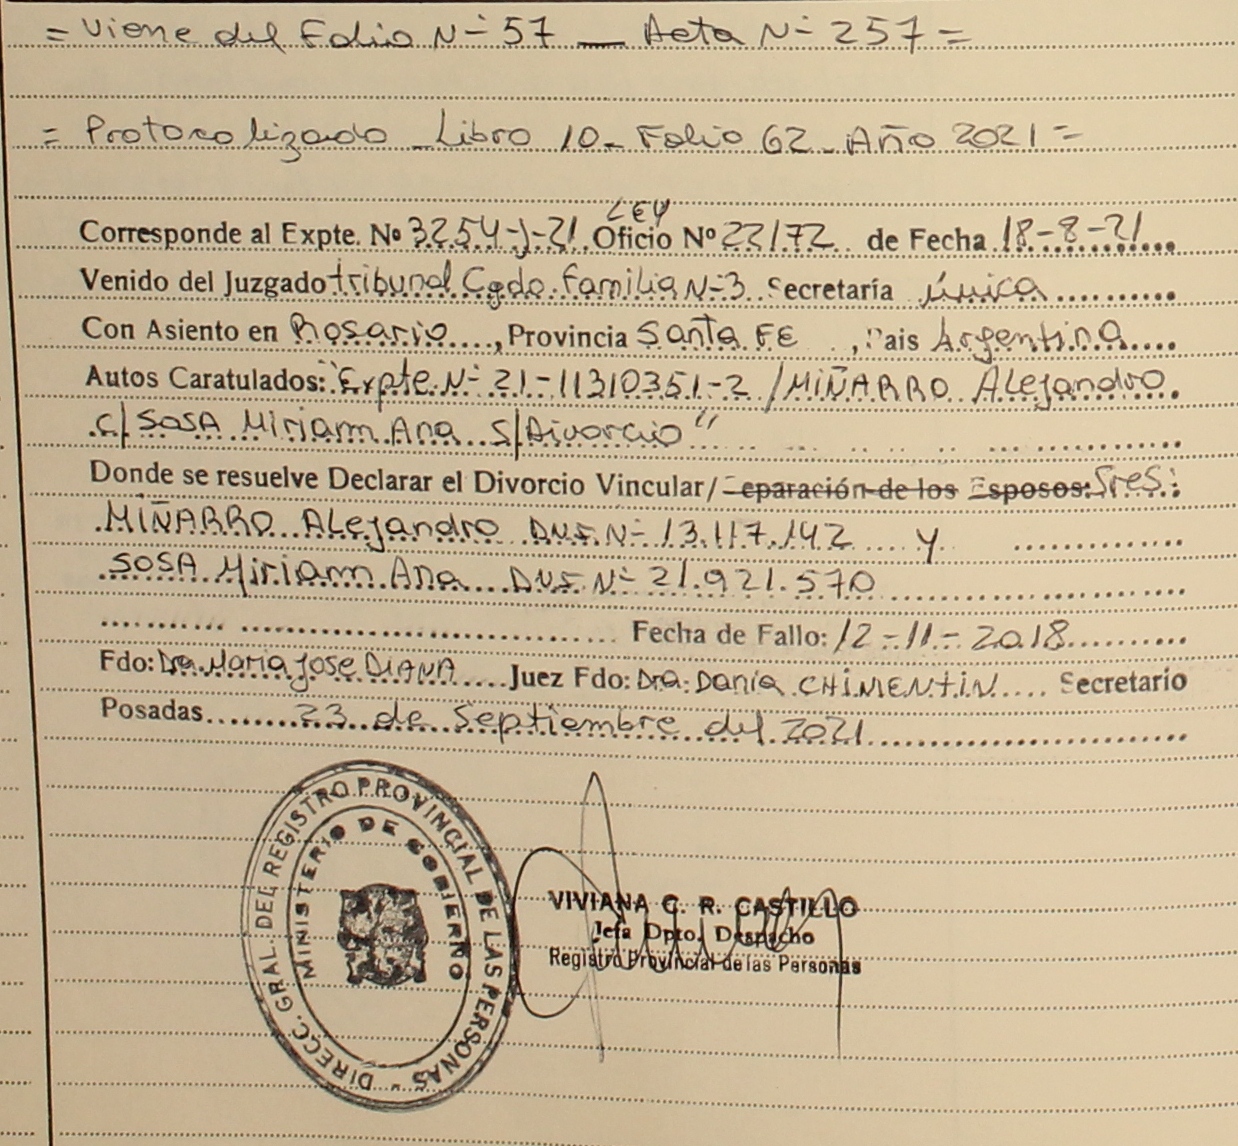 = Viene del Folio Nº 57 — Acta Nº 257 =
= Protocolizado - Libro 10 - Folio 62 - Año 2021 =
LEY
Corresponde al Expte. Nº 3254-J-21 Oficio Nº 22172 de Fecha 18-8-21
Venido del Juzgado tribunal Cgdo. Familia Nº 3 Secretaría única
Con Asiento en Rosario, Provincia Santa FE, Pais Argentina
Autos Caratulados: "Expte. Nº 21-11310351-2 / MIÑARRO Alejandro
c/ SOSA Miriam Ana s/ Divorcio"
Donde se resuelve Declarar el Divorcio Vincular/Separación de los Esposos: Sres:
MIÑARRO Alejandro D.N.I. Nº 13.117.142 y
SOSA Miriam Ana D.N.I. Nº 21.921.570
Fecha de Fallo: 12-11-2018
Fdo: Dra. Maria Jose DIANA Juez Fdo: Dra. Dania CHIMENTIN Secretario
Posadas 23 de Septiembre del 2021
DIRECC. GRAL. DEL REGISTRO PROVINCIAL DE LAS PERSONAS -
MINISTERIO DE GOBIERNO
VIVIANA C. R. CASTILLO
Jefa Dpto. Despacho
Registro Provincial de las Personas